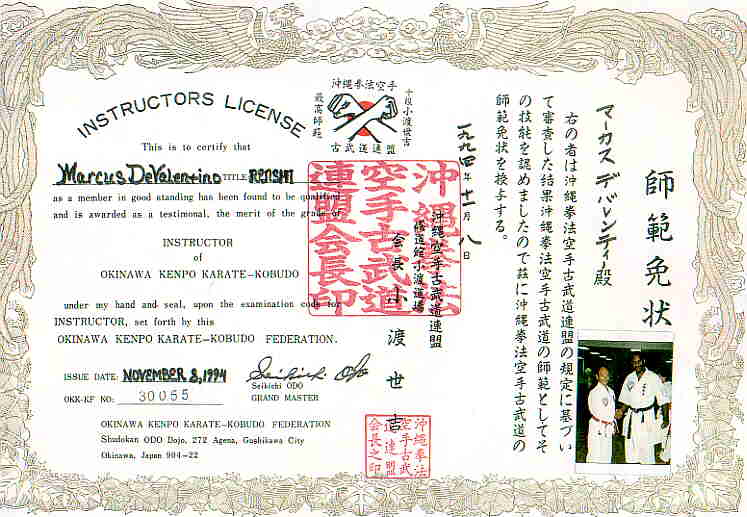 INSTRUCTORS LICENSE
沖縄拳法空手
最高師範
十段小渡世吉
古武道連盟
This is to certify that
Marcus DeValentino TITLE RENSHI
as a member in good standing has been found to be qualified
and is awarded as a testimonal, the merit of the grade of
INSTRUCTOR
of
OKINAWA KENPO KARATE-KOBUDO
under my hand and seal, upon the examination code for
INSTRUCTOR, set forth by this
OKINAWA KENPO KARATE-KOBUDO FEDERATION.
ISSUE DATE: NOVEMBER 8, 1994
Seikichi Odo
Seikichi ODO
OKK-KF NO. 30055
GRAND MASTER
OKINAWA KENPO KARATE-KOBUDO FEDERATION
Shudokan ODO Dojo, 272 Agena, Gushikawa City
Okinawa, Japan 904-22
師範免状
マーカス デバレンティー殿
右の者は沖縄拳法空手古武道連盟の規定に基づい
て審査した結果沖縄拳法空手古武道の師範としてそ
の技能を認めましたので茲に沖縄拳法空手古武道の
師範免状を授与する。
一九九四年十一月八日
沖縄空手古武道連盟
修道館小渡道場
会長 小渡世吉
沖縄拳法
空手古武道
連盟会長印
沖縄拳法
空手古武
道連盟
会長之印